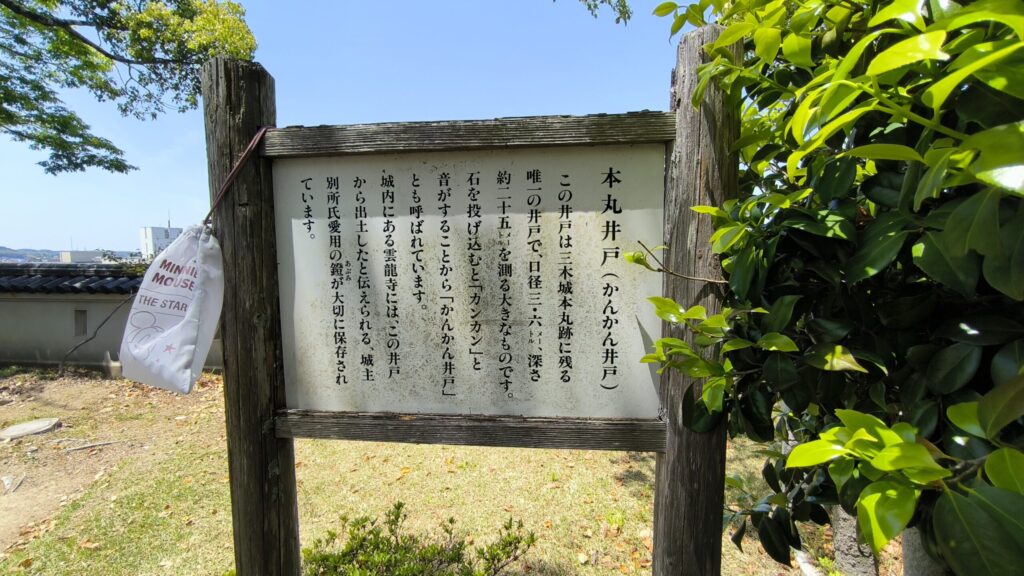 本丸井戸（かんかん井戸）
この井戸は三木城本丸跡に残る
唯一の井戸で、口径三・六㍍、深さ
約二十五㍍を測る大きなものです。
石を投げ込むと「カンカン」と
音がすることから「かんかん井戸」
とも呼ばれています。
城内にある雲龍寺には、この井戸
から出土したと伝えられる、城主
別所氏愛用の鐙が大切に保存され
あぶみ
ています。
MINNIE
MOUSE
THE STAR